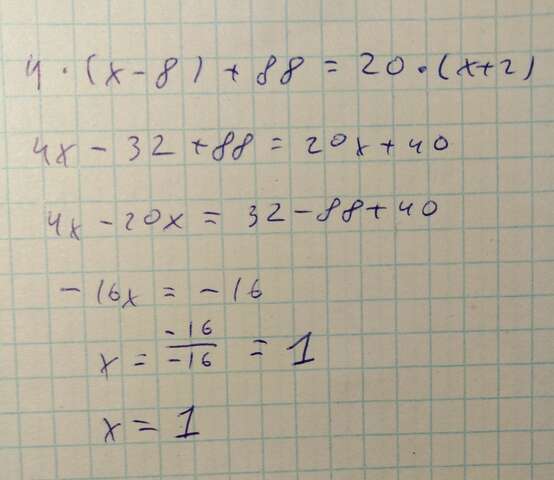 4 · (x - 8) + 88 = 20 · (x+2)
4x - 32 + 88 = 20x + 40
4x - 20x = 32 - 88 + 40
- 16x = - 16
x = -16/-16 = 1
x = 1